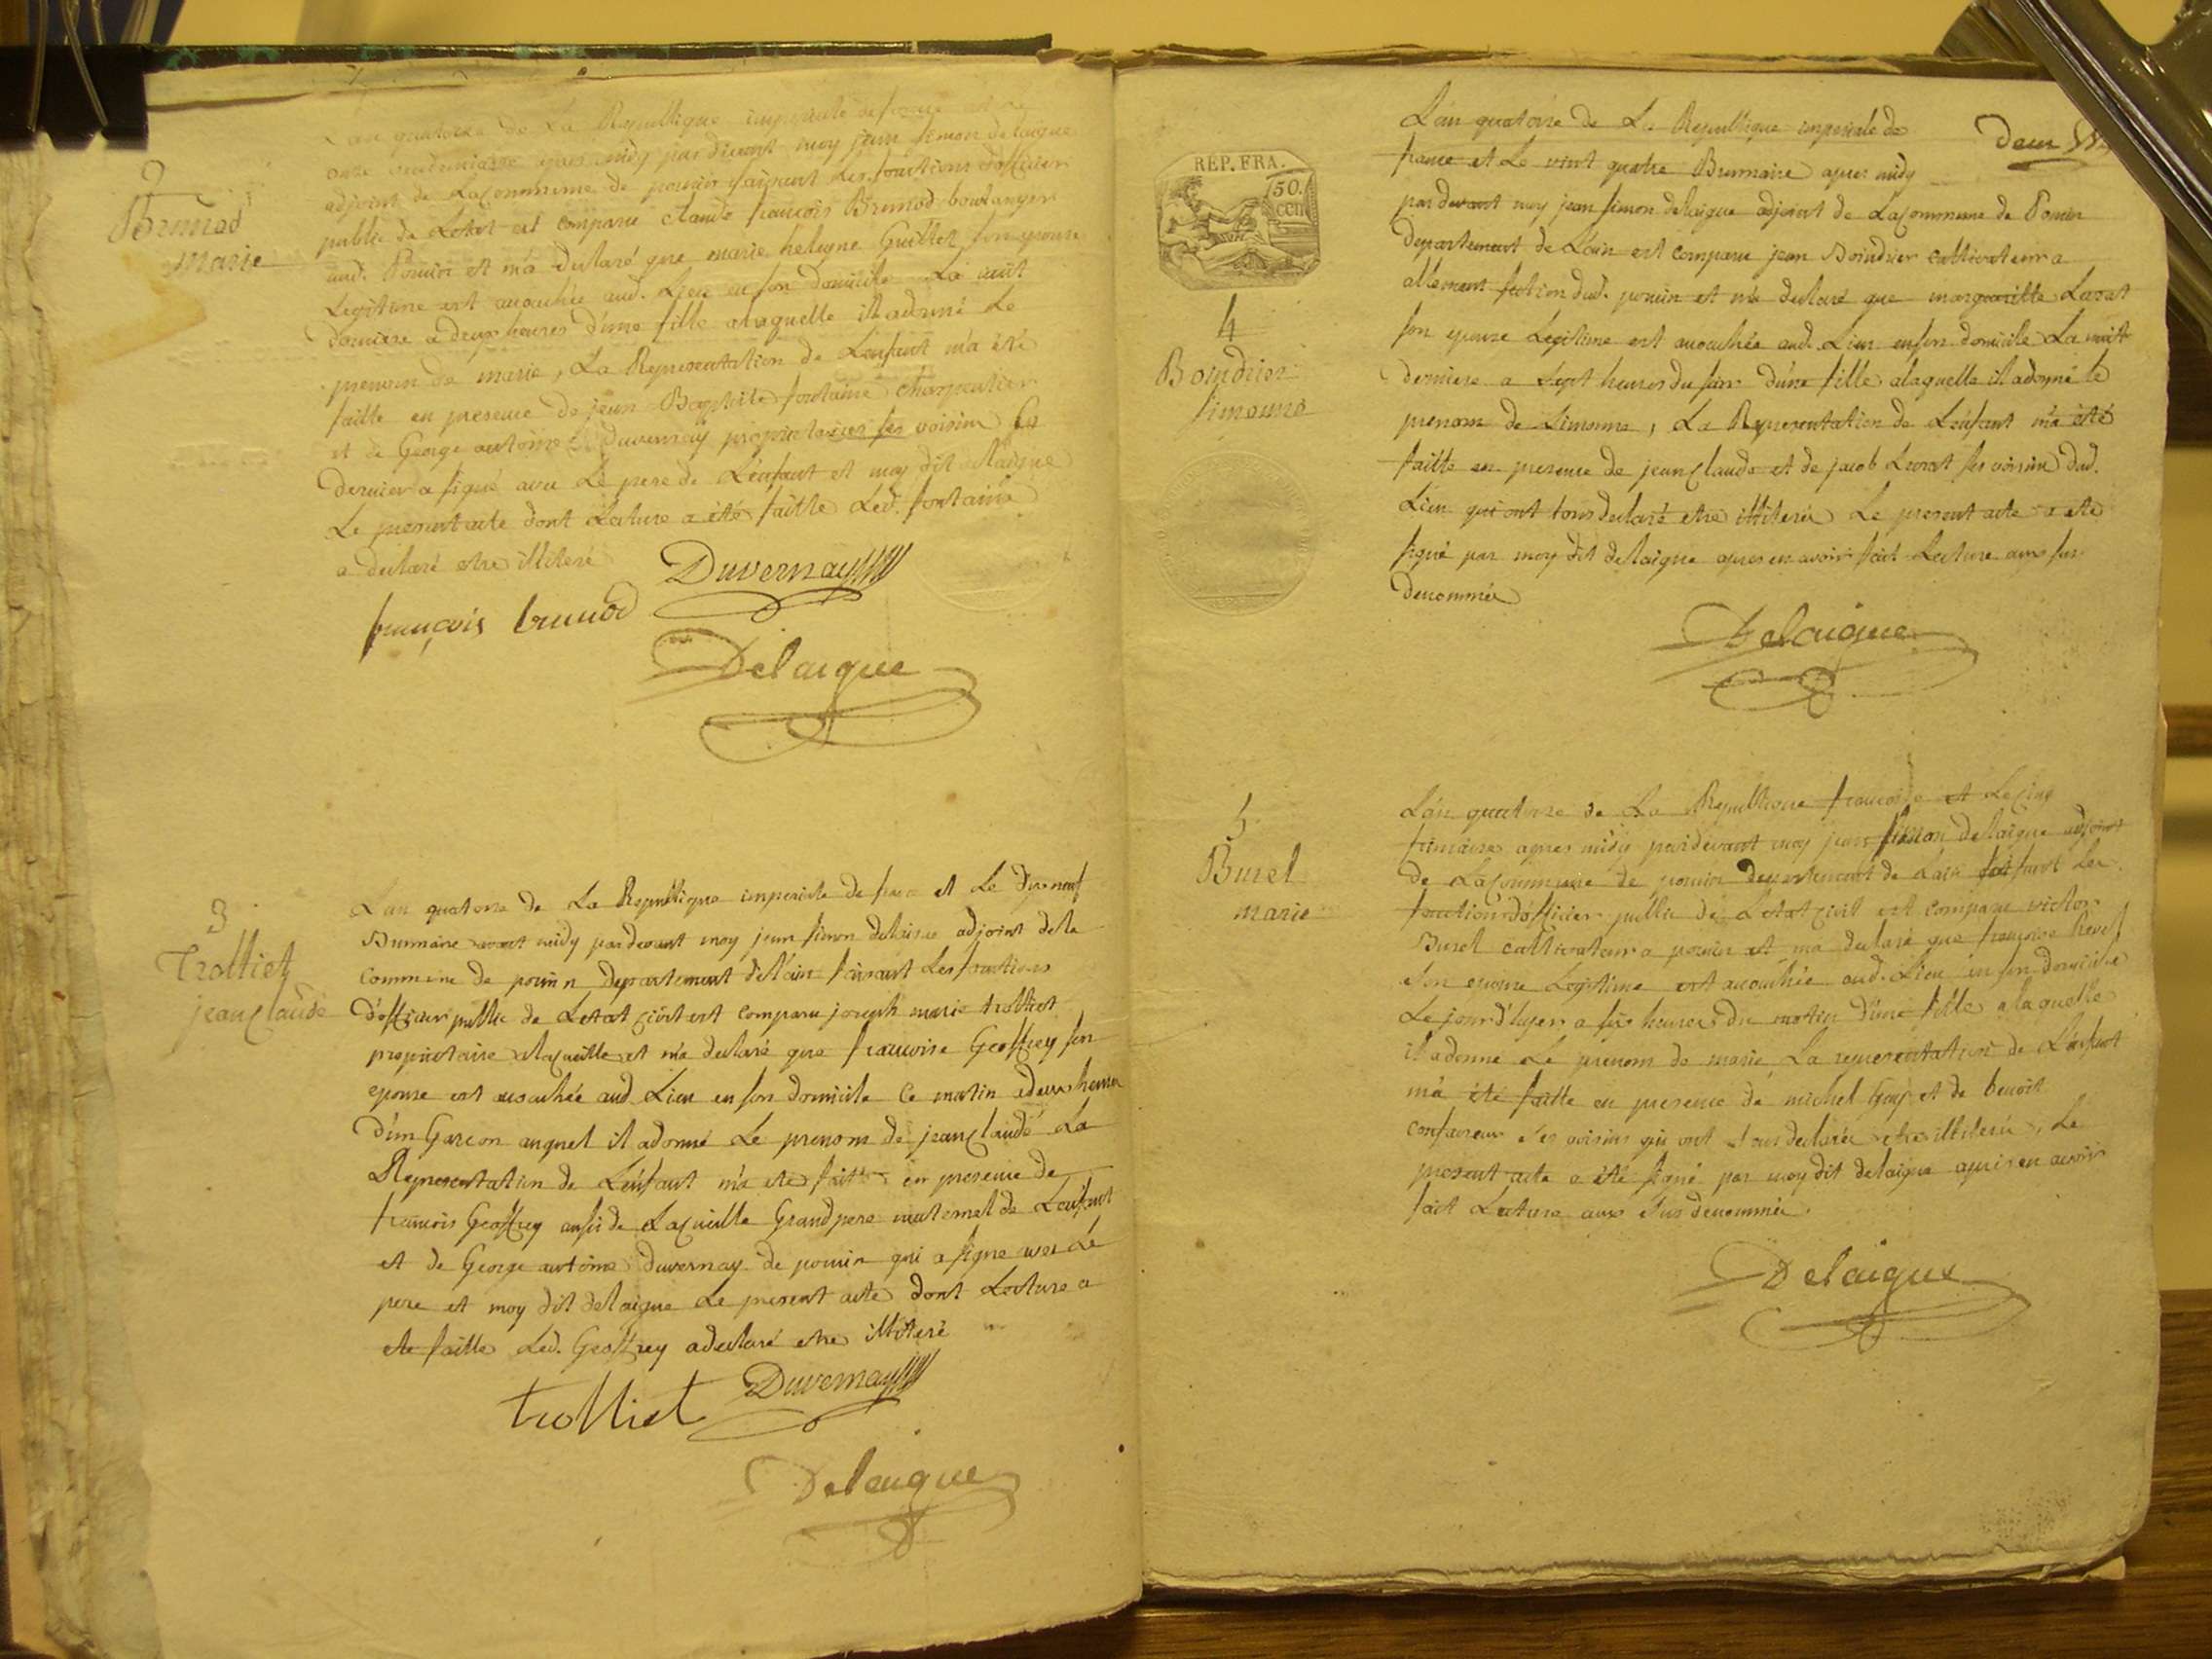 2
Brunod
Marie
L'an quatorze de La Republique imperiale de france et le
onze vendemiaire apres midy par devant moy jean simon delaigue
adjoint de La Commune de pouin faisant Les fonctions d'officier
public de Letat est comparu claude francois Brunod boulanger
aud. Pouin et m'a declaré que marie helegne Guillet son epouse
Legitime est accouchée aud. Lieu en son domicile La nuit
derniere a deux heures d'une fille alaquelle il adonné Le
prenom de marie, La Representation de Lenfant m'a été
faitte en presence de jean Baptiste fontaine charpentier
et de George antoine Duvernay proprietaires ses voisins Ce
dernier a signé avec Le pere de L'enfant et moy dit delaigue
Le present acte dont Lecture a été faitte Led. fontaine
a declaré etre illiteré
Duvernay
françois brunod
Delaigue
3
Trolliet
jean Claude
L'an quatorze de La Republique imperiale de france et Le dix neuf
Brumaire avant midy par devant moy jean simon delaigue adjoint dela
Commune de pouin departement del'ain faisant Les fonctions
d'officier public de Letat civil est comparu joseph marie trolliet
proprietaire alacueille et m'a declaré que francoise Geoffrey son
epouse est accouchée aud. Lieu en son domicile Ce matin adeux heures
D'un Garcon auquel il adonné Le prenom de jean Claude La
Representation de Lenfant m'a eté faitte en presence de
francois Geoffrey ausside Lacueille Grand pere maternel de Lenfant
et de George antoine duvernay de pouin qui a signé avec Le
pere et moy dit delaigue Le present acte dont Lecture a
ete faitte Led. Geoffrey adeclaré etre illiteré
trolliet Duvernay
Delaigue
Deux
REP. FRA.
50.
cen
4
Boindrier
simonne
L'an quatorze de La Republique imperiale de
france et Le vint quatre Brumaire apres midy
par devant moy jean simon delaigue adjoint de La Commune de Pouin
departement de L'ain est comparu jean Boindrier cultivateur a
allement section dud. pouin et m'a declaré que margueritte Lavrat
son epouse Legitime est accouchée aud. Lieu enson domicile La nuitt
derniere a Sept heures du soir d'une fille alaquelle il adonné le
prenom de Simonne, La Representation de Lenfant m'a été
faitte en presence de jean Claude et de jacob Lavrat ses voisins dud.
Lieu qui ont tous declaré etre illiterés Le present acte a eté
signé par moy dit delaigue apres en avoir fait Lecture aux sus
denommés
Delaigue
5
Buret
marie
L'an quatorze de La Republique francoise et Le cinq
frimaire apres midy pardevant moy jean simon delaigue adjoint
de La Commune de pouin departement de Lain faisant Les
fonctions d'officier public de Letat Civil est comparu victor
Buret cultivateur a pouin et ma declaré que francoise
son epouse Legitime est accouchée aud. Lieu en son domicile
Le jour d'hyer a six heures du matin d'une fille alaquelle
il adonné Le prenom de marie La representation de L'enfant
m'a été faitte en presence de michel Guy et de benoit
ses voisins qui ont tous declarés etre illiterés, Le
present acte a été signé par moy dit delaigue apres en avoir
fait Lecture aux sus denommés.
Delaigue